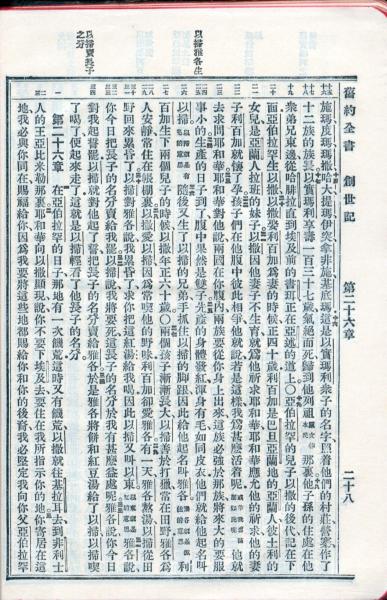 舊約全書 創世記 第二十六章 二十八
以掃雅各生
以掃賣長子之分
施瑪度瑪瑪撒哈大提瑪伊突拿非施基底瑪這是以實瑪利衆子的名字照着他們的村莊營寨作了
十二族的族長以實瑪利享壽一百三十七歲氣絕而死歸到他列祖原文作本民那裏他子孫的住處在他
衆弟兄東邊從哈腓拉直到埃及前的書珥正在亞述的道上○亞伯拉罕的兒子以撒的後代記在下
面亞伯拉罕生以撒以撒娶利百加爲妻的時候正四十歲利百加是巴旦亞蘭地的亞蘭人彼土利的
女兒是亞蘭人拉班的妹子以撒因他妻子不生育就爲他祈求耶和華耶和華應允他的祈求他的妻
子利百加就懷了孕孩子們在他腹中彼此相爭他就說若是這樣我爲甚麽活着呢他就
去求問耶和華耶和華對他說兩國在你腹內兩族要從你身上出來這族必強於那族將來大的要服
事小的生產的日子到了腹中果然是雙子先產的身體發紅渾身有毛如同皮衣他們就給他起名叫
以掃以掃就是有毛的意思隨後又生了以掃的兄弟手抓住以掃的腳跟因此給他起名叫雅各雅各就是抓住的意思利
百加生下兩個兒子的時候以撒年正六十歲○兩個孩子漸漸長大以掃善於打獵常在田野雅各爲
人安靜常住在帳棚裏以撒愛以掃因爲常喫他的野味利百加卻愛雅各有一天雅各熬湯以掃從田
野回來累昏了以掃對雅各說我累昏了求你把這紅湯給我喝因此以掃又叫以東以東就是紅的意思雅各說
你今日把長子的名分賣給我罷以掃說我將要死這長子的名分於我有甚麽益處呢雅各說你今日
對我起誓罷以掃就對他起了誓把長子的名分賣給雅各於是雅各將餅和紅豆湯給了以掃以掃喫
了喝了便起來走了這就是以掃輕看了他長子的名分
第二十六章 在亞伯拉罕的日子那地有一次饑荒這時又有饑荒以撒就往基拉耳去到非利士
人的王亞比米勒那裏耶和華向以撒顯現說你不要下埃及去要住在我所指示你的地你寄居在這
地我必與你同在賜福給你因爲我要將這些地都賜給你和你的後裔我必堅定我向你父亞伯拉罕